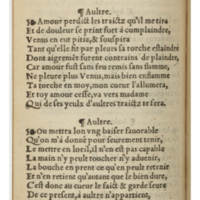 ¶ Aultre.
Amour perdict les traictz qu'il me tira
Et de douleur se print fort à complaindre,
Venus en eut pitié, & souspira
Tant qu'elle fit par pleurs sa torche estaindre
Dont aigrement furent contrains de plaindre,
Car amour fust sans feu remis sans flamme,
Ne pleure plus Venus, mais bien enflamme
Ta torche en moy, mon cueur l'allumera,
Et toy amour cesse, va vers madame
Qui de ses yeulx d'aultres traictz te fera.
¶ Aultre.
Ou mettra lon vng baiser fauorable
Qu'on m'a donné pour seurement tenir,
Le mettre en l'oeil, il n'est pas capable
La main n'y peult toucher n'y aduenir,
La bouche en prent ce qu'en peult retenir
Et n'en retient qu'autant que le bien dure,
C'est donc au cueur le faict & garde seure
De ce present, à aultres n'appartient,